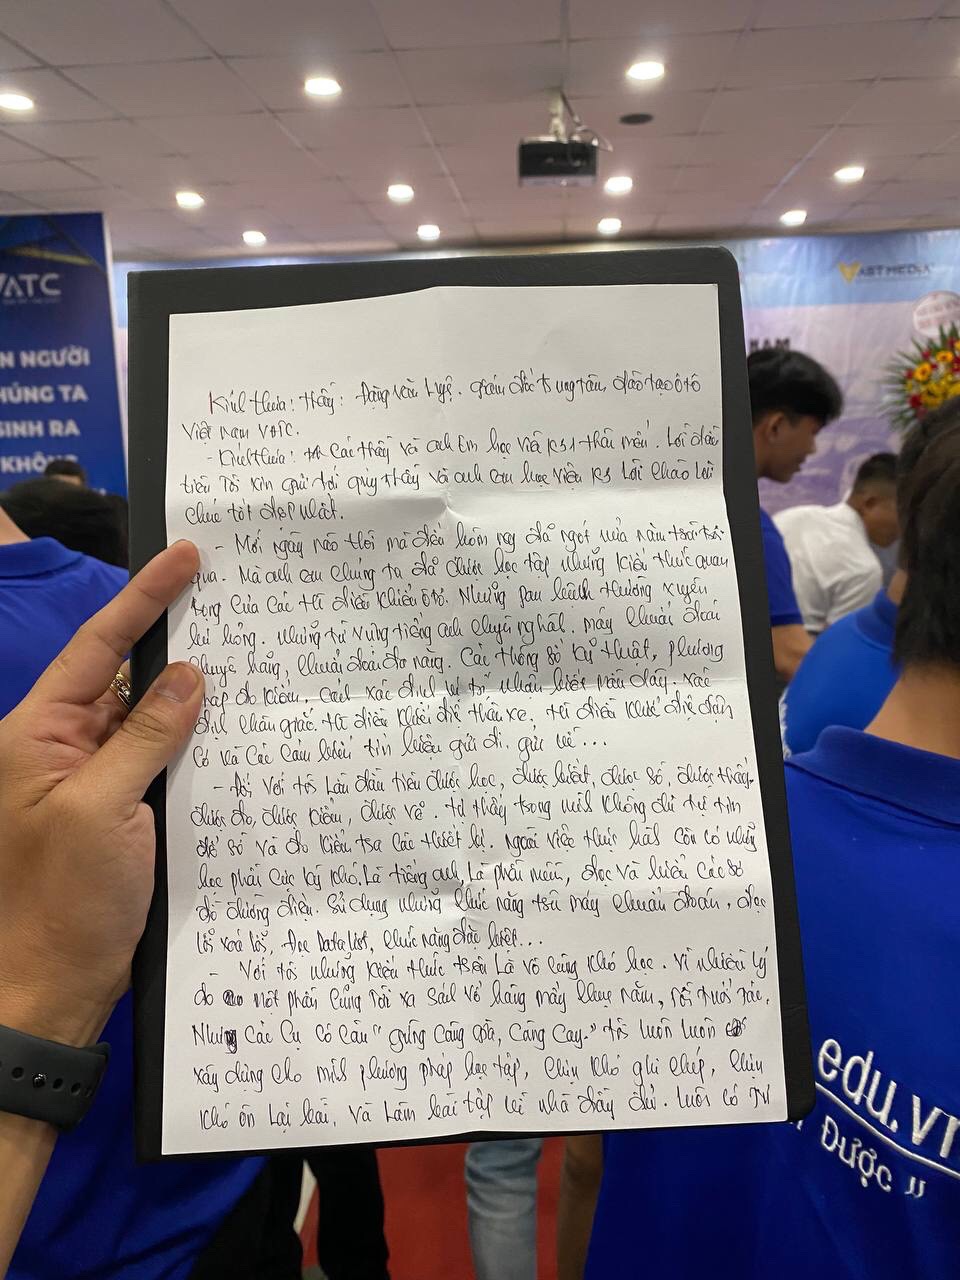 VATC
N NGƯỜI
HÚNG TA
SINH RA
KHÔNG
VAST MEDIA
NAM
Kính thưa: thầy: Đặng Văn giám đốc trung tâm, đào tạo ô tô
Việt Nam VATC.
- Kính thưa: các thầy và anh em học viên K51 thân mến. Lời đầu
tiên Tôi xin gửi tới quý thầy và anh em học viên Lời chào Lời
chúc tốt đẹp nhất.
- Mới ngày nào thôi mà đến hôm nay đã ngót nửa năm trôi
qua. Mà anh em chúng ta đã được học tập những kiến thức quan
trọng của các từ điều khiển ô tô. Những pan bệnh thường xuyên
hư hỏng. những từ vựng tiếng anh chuyên nghành. máy chuẩn đoán
chuyên hãng, chuẩn đoán đa năng. Các thông số kỹ thuật, phương
pháp đo kiểm. cách xác định vị trí nhận biết màu dây. xác
định chân giắc. từ điều khiển điện thân xe, từ điều khiển điện động
cơ và các cảm biến tín hiệu gửi đi. gửi về...
- Đối với tôi Lần đầu tiên được học, được biết, được sờ, được thấy
được đo, được kiểm, được vẽ. tự thấy trong mình không đủ tự tin
để sờ và đo kiểm tra các thiết bị. Ngoài việc thực hành còn có những
học phần cực kỳ khó. Là tiếng anh, Là phần mềm, đọc và hiểu các sơ
đồ đường điện. Sử dụng những chức năng trên máy chuẩn đoán, đọc
lỗi xoá lỗi, Đọc Data List, chức năng đặc biệt...
- Với tôi những kiến thức trên Là vô cùng khó học. Vì nhiều lý
do một phần cũng rời xa sách vở hàng mấy chục năm, rồi tuổi tác,
Nhưng các cụ có câu "gừng càng già, càng cay." tôi luôn luôn
xây dựng cho mình phương pháp học tập, chịu khó ghi chép, chịu
khó ôn lại bài, và Làm bài tập về nhà đầy đủ. Luôn có
edu.vn
Được"